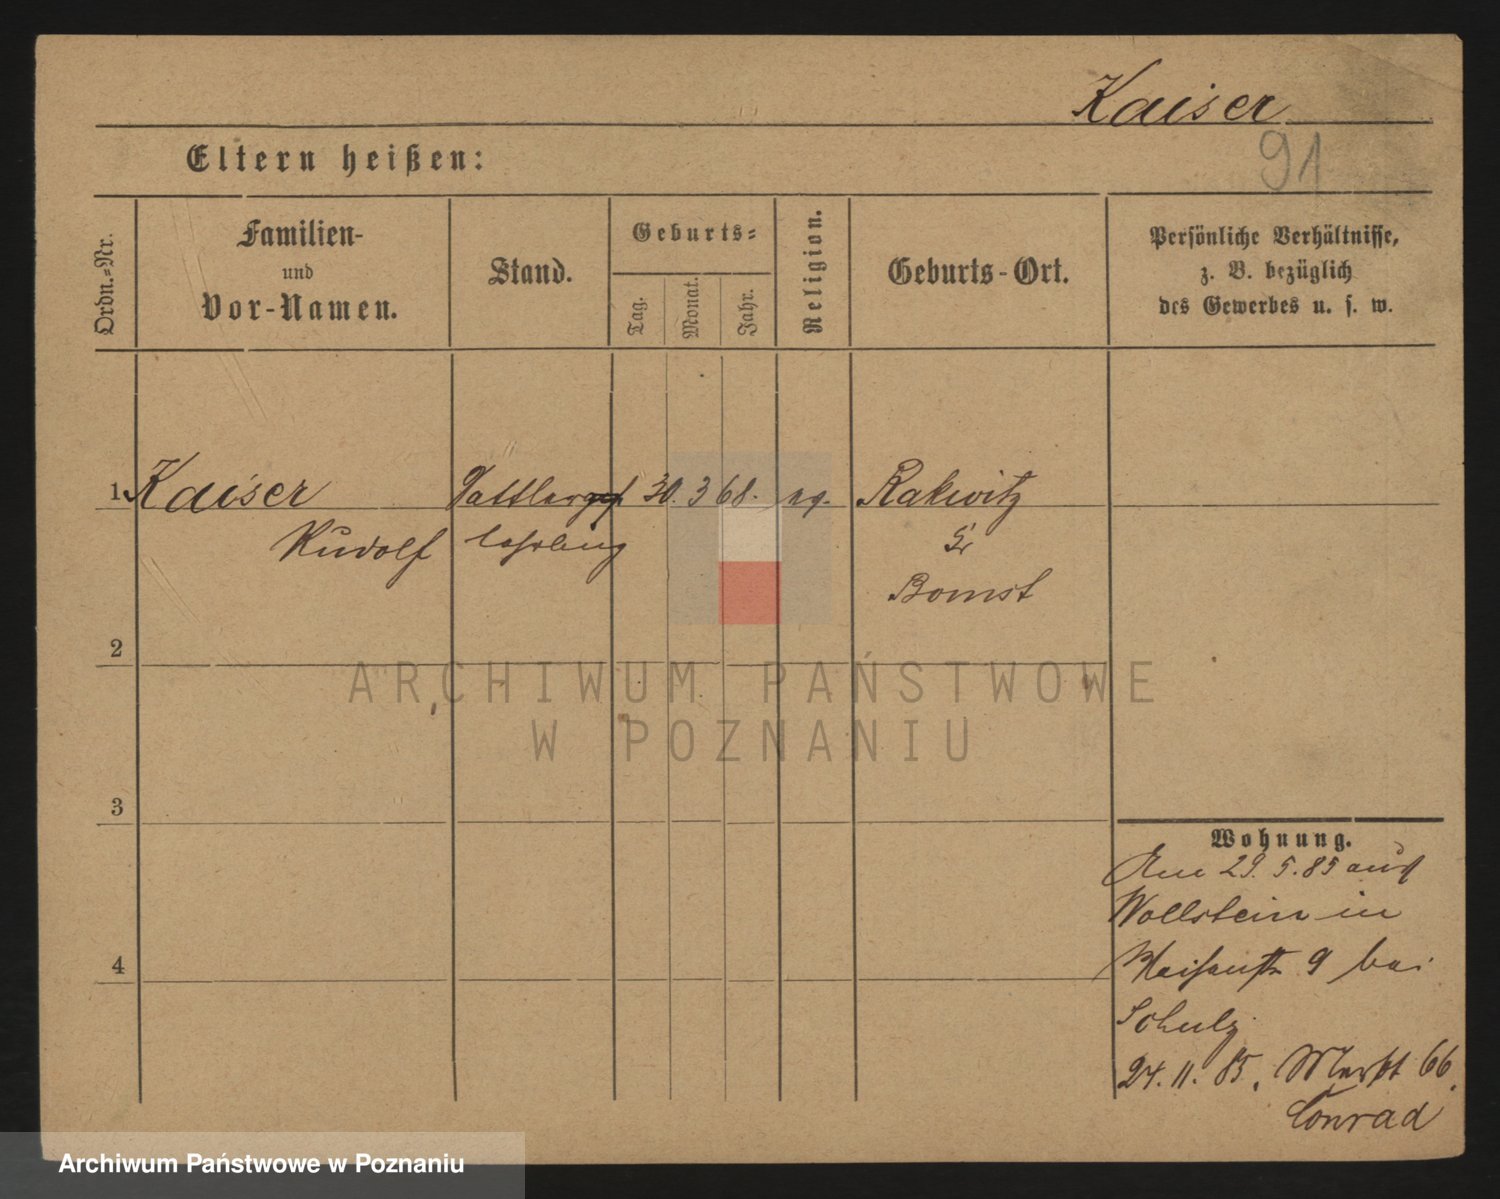 Kaiser
91
Eltern heißen:
Ordn.=Nr.
Familien-
und
Vor-Namen.
Stand.
Geburts=
Tag.
Monat.
Jahr.
Religion.
Geburts-Ort.
Persönliche Verhältnisse,
z. B. bezüglich
des Gewerbes u. s. w.
1. Kaiser Sattler 30. 3 68. ev. Rakwitz
Rudolf lehrling Kr
Bomst
2
3
4
Wohnung.
Am 29. 5. 85 aus
Wollstein in
9 bei
Schulz
24. 11. 85. Markt 66.
Conrad
ARCHIWUM PAŃSTWOWE
W POZNANIU
Archiwum Państwowe w Poznaniu